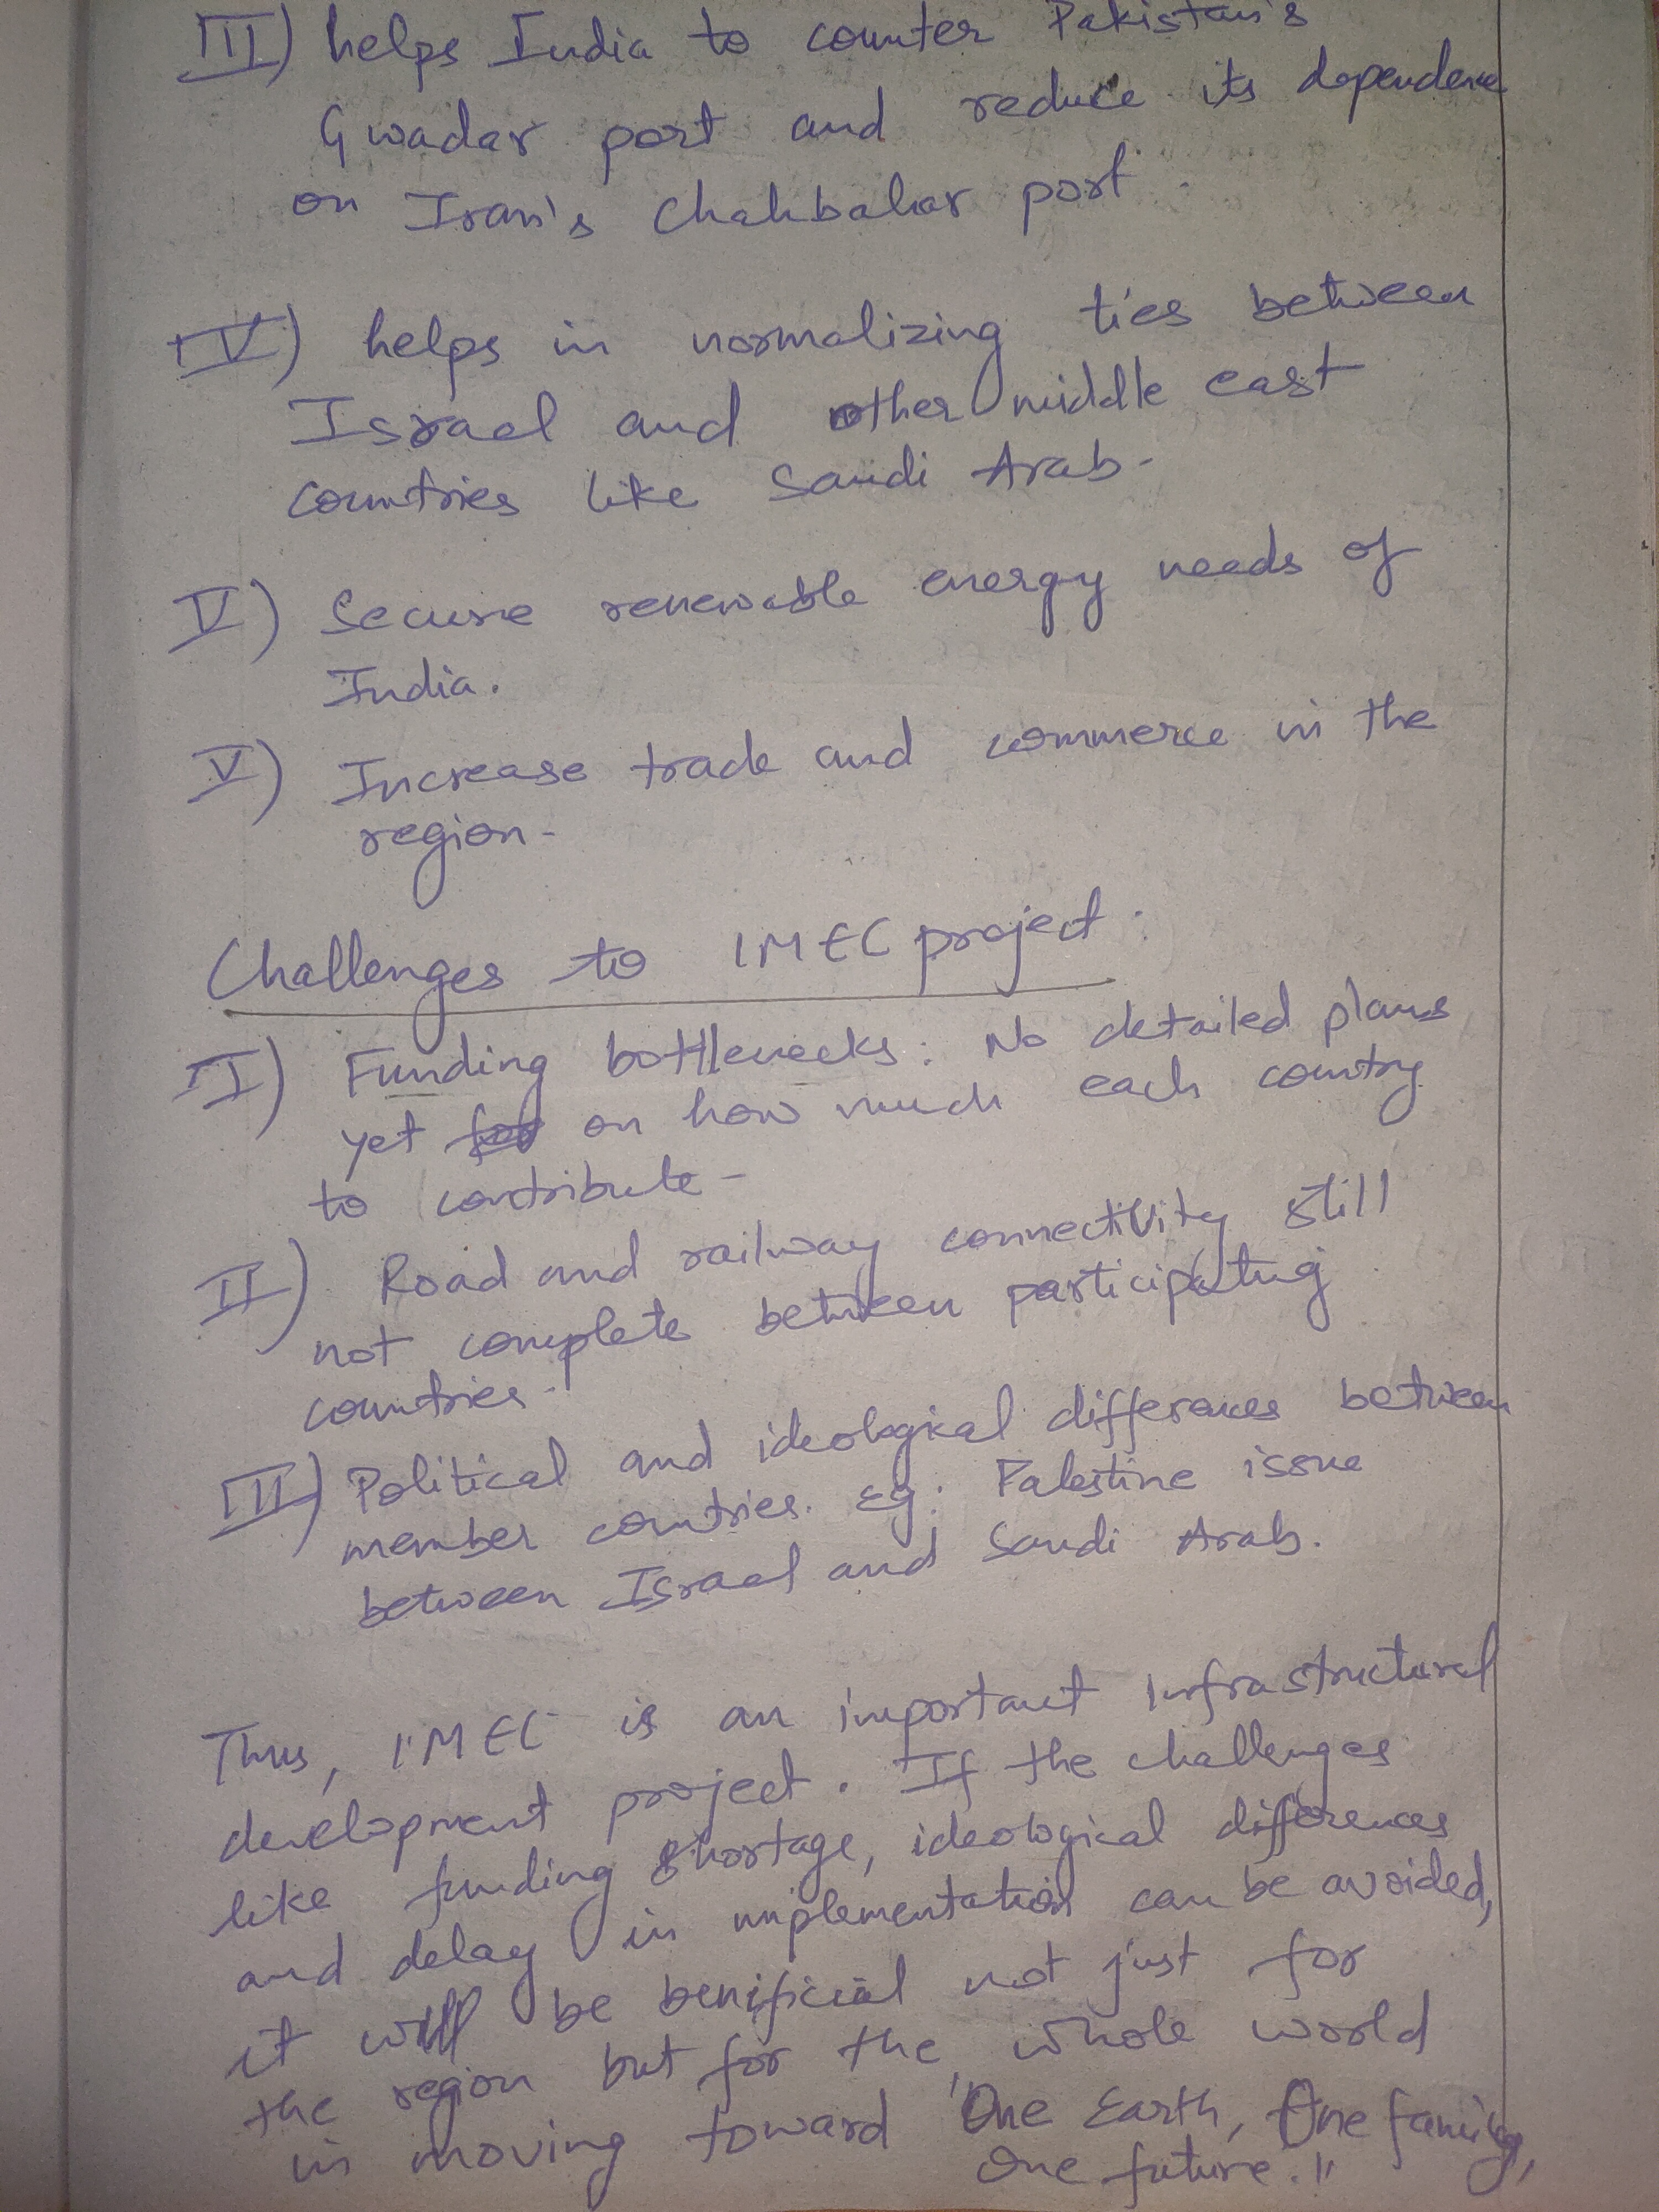 III) helps India to counter Pakistan's
Gwadar port and reduce its dependence
on Iran's Chahbahar port.
IV) helps in normalizing ties between
Israel and other middle east
countries like Saudi Arab.
V) Secure renewable energy needs of
India.
V) Increase trade and commerce in the
region.
Challenges to IMEC project:
I) Funding bottlenecks: No detailed plans
yet on how much each country
to contribute.
II) Road and railway connectivity still
not complete between participating
countries.
III) Political and ideological differences between
member countries. eg: Palestine issue
between Israel and Saudi Arab.
Thus, IMEC is an important infrastructural
development project. If the challenges
like funding shortage, ideological differences
and delay in implementation can be avoided,
it will be benificial not just for
the region but for the whole world
in moving toward "One Earth, One family,
One future."